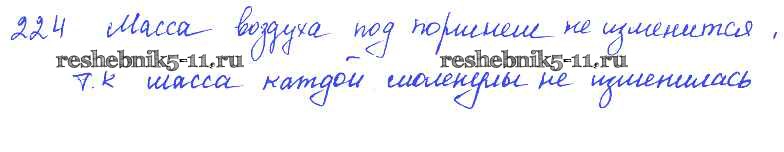 224 Масса воздуха под поршнем не изменится,
reshebnik5-11.ru reshebnik5-11.ru
т.к масса каждой молекулы не изменилась